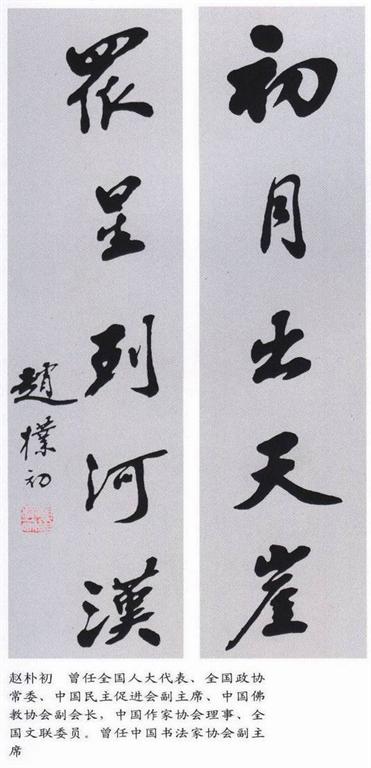 初月出天崖
眾星列河漢
趙樸初
赵朴初　曾任全国人大代表、全国政协
常委、中国民主促进会副主席、中国佛
教协会副会长，中国作家协会理事、全
国文联委员。曾任中国书法家协会副主
席